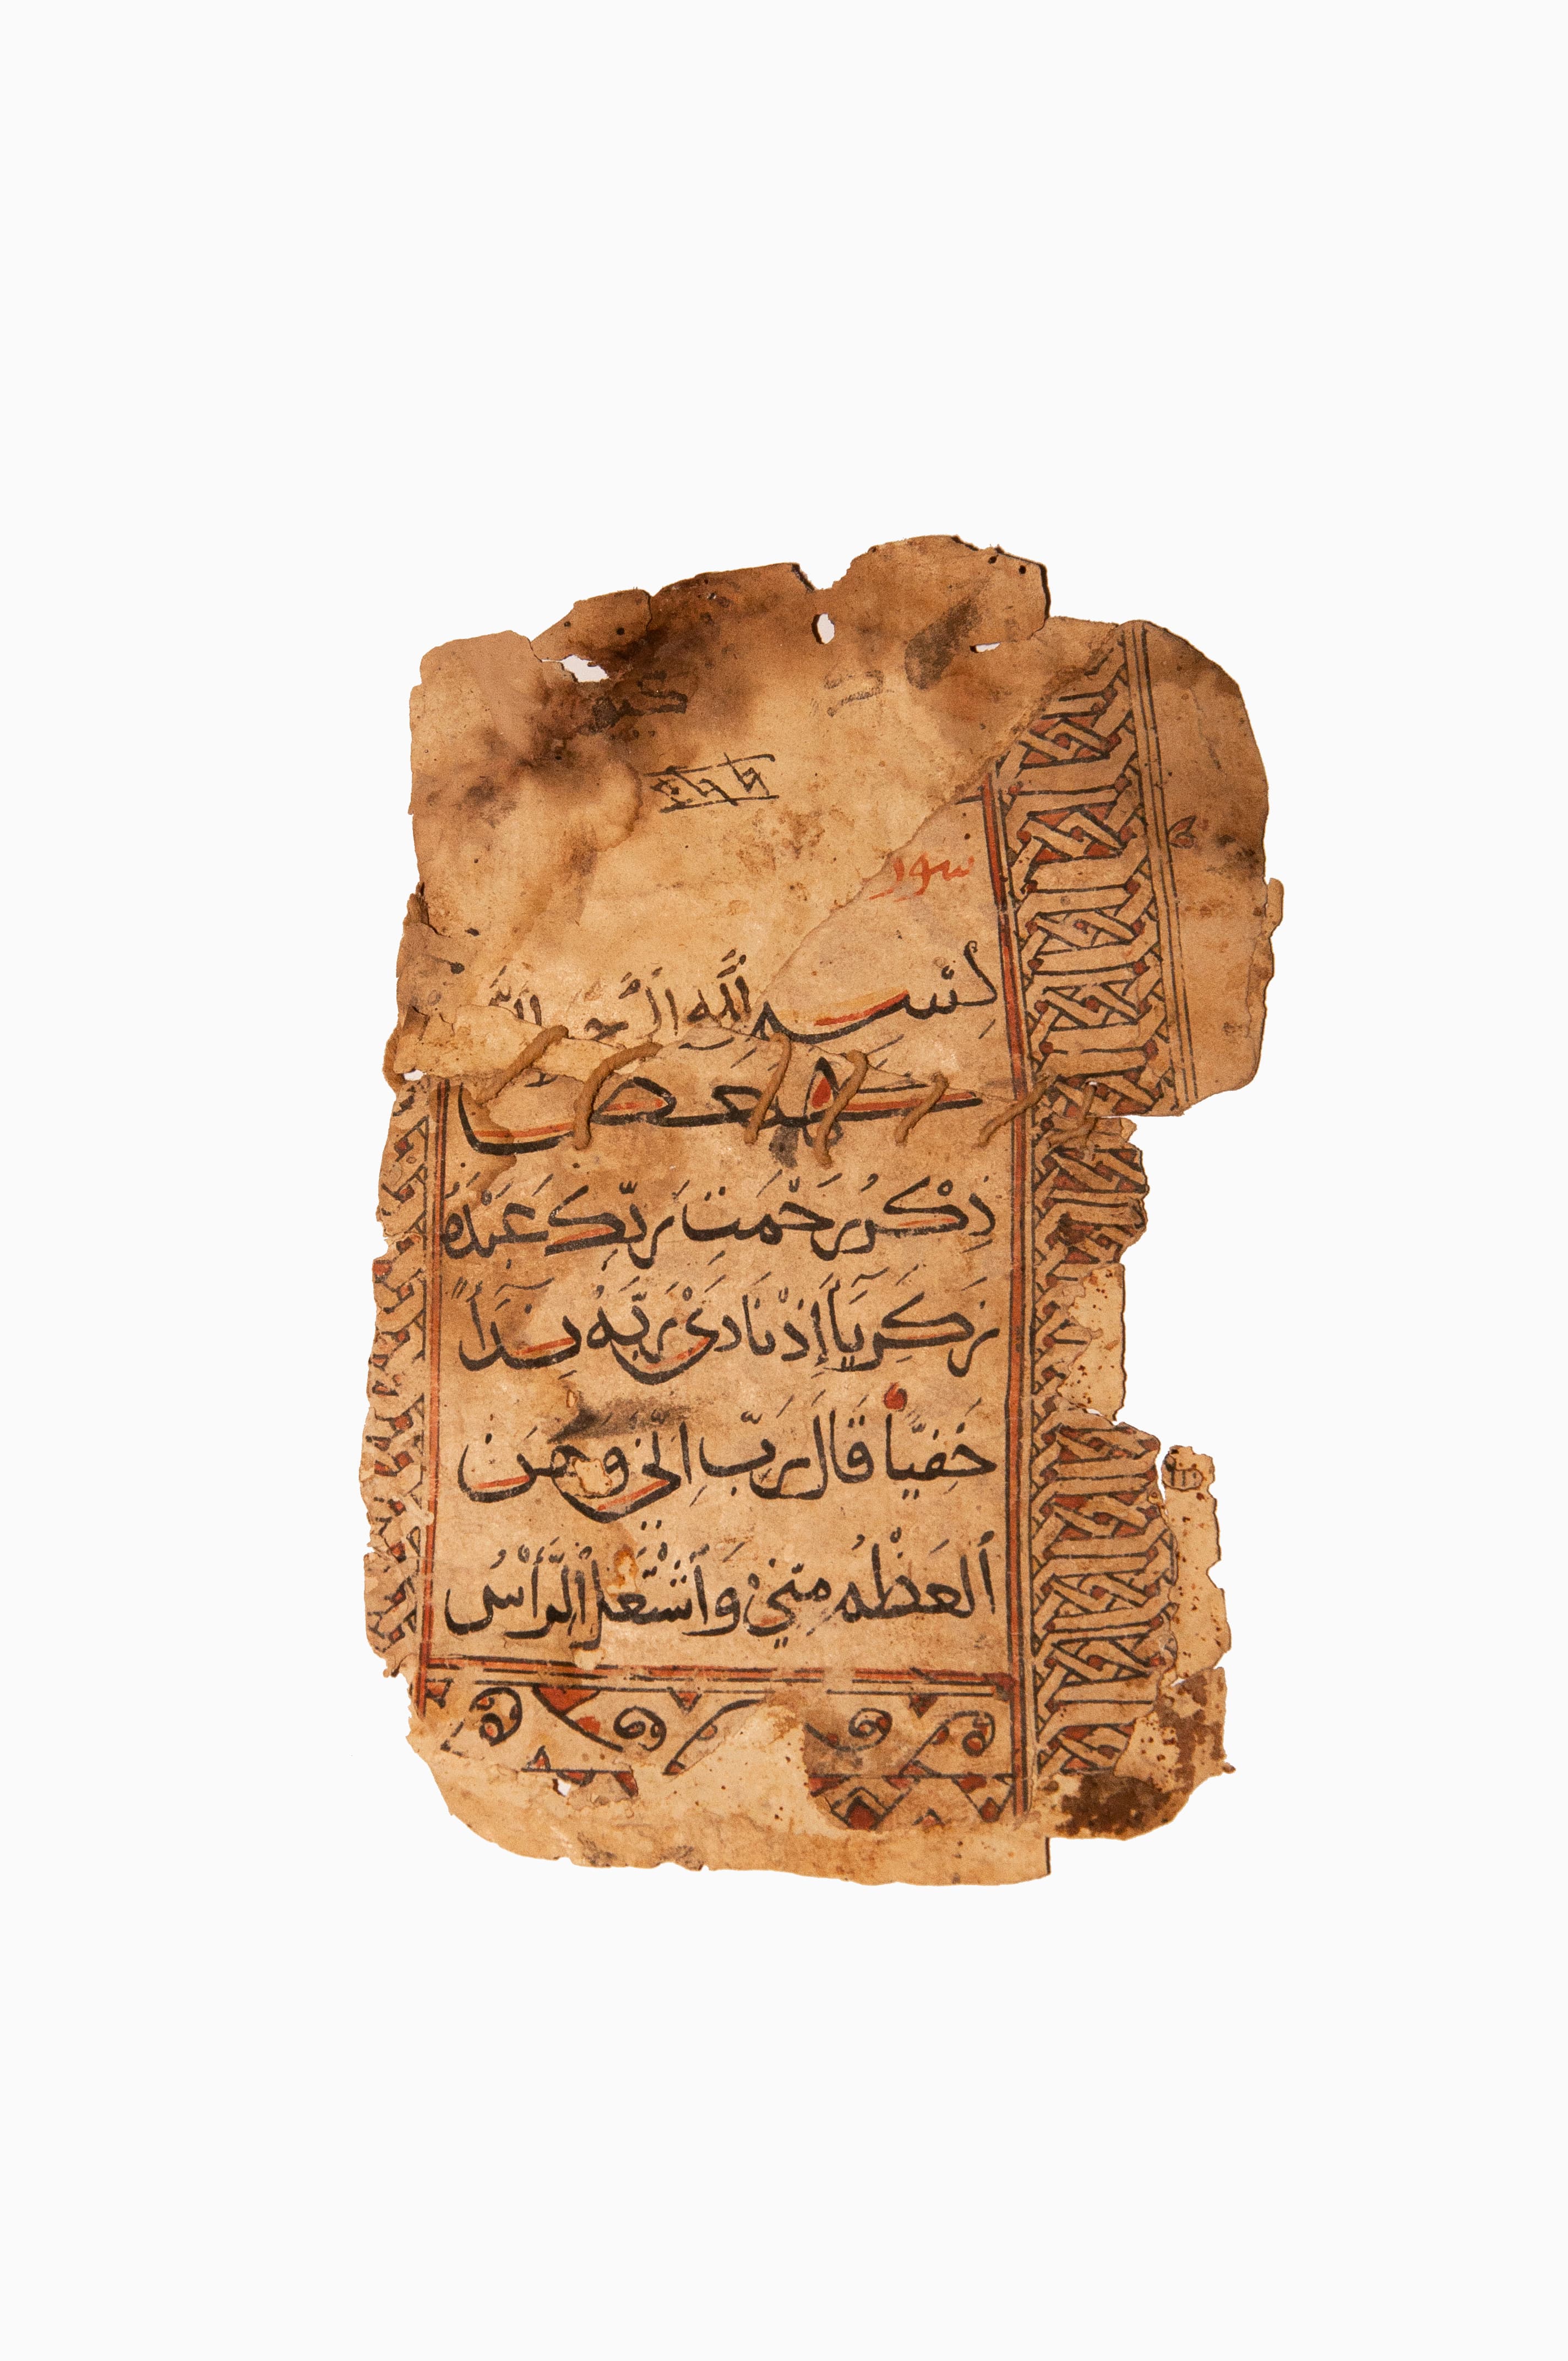 سور
بسم الله الرحمن الر
كهيعص
ذِكْرُ رَحْمَتِ رَبِّكَ عَبْدَهُ
زَكَرِيَّآ إِذْ نَادَىٰ رَبَّهُ نِدَآءً
خَفِيّٗا قَالَ رَبِّ إِنِّي وَهَنَ
ٱلْعَظْمُ مِنِّي وَٱشْتَعَلَ ٱلرَّأْسُ